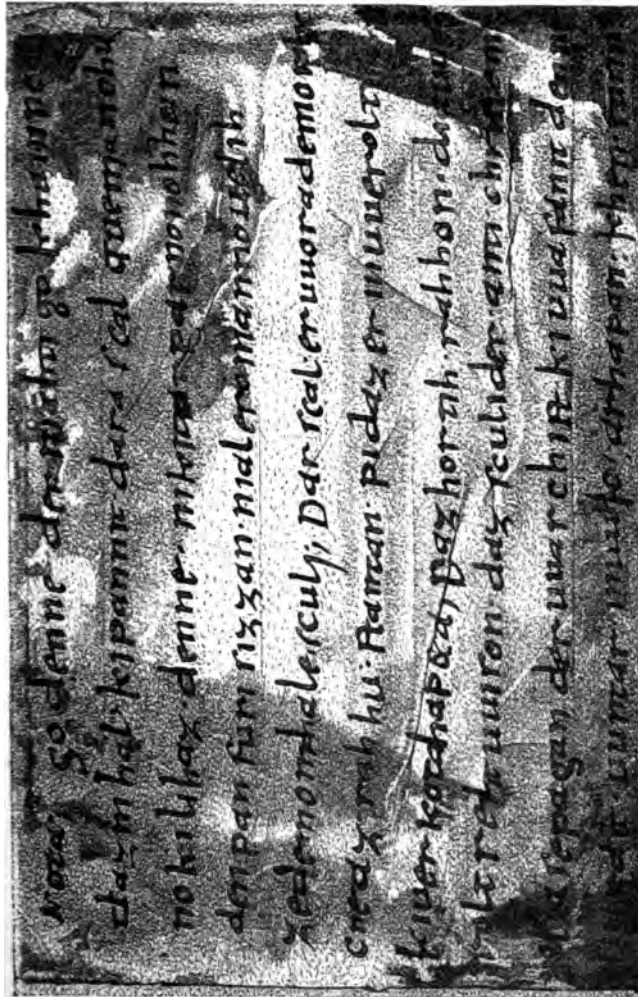 so denne der mahtigo khuninc
daz mahal kipannit dara scal queman chu
no kilihaz. denne ni kitar parno nohhein
den pan furi sizzan. ni allero manno uuelih
ze demo mahale sculi; Dar scal er uuora demo ri
che az rahhu stantan. pi daz er in uuerolti
kiuuerkota hapeta; Daz hortih rahhon dia
olt reht uuison. daz sculi der anti christo m
pagan der uuarch ist kiuuafanit denn
untar in uuic arhapan khen